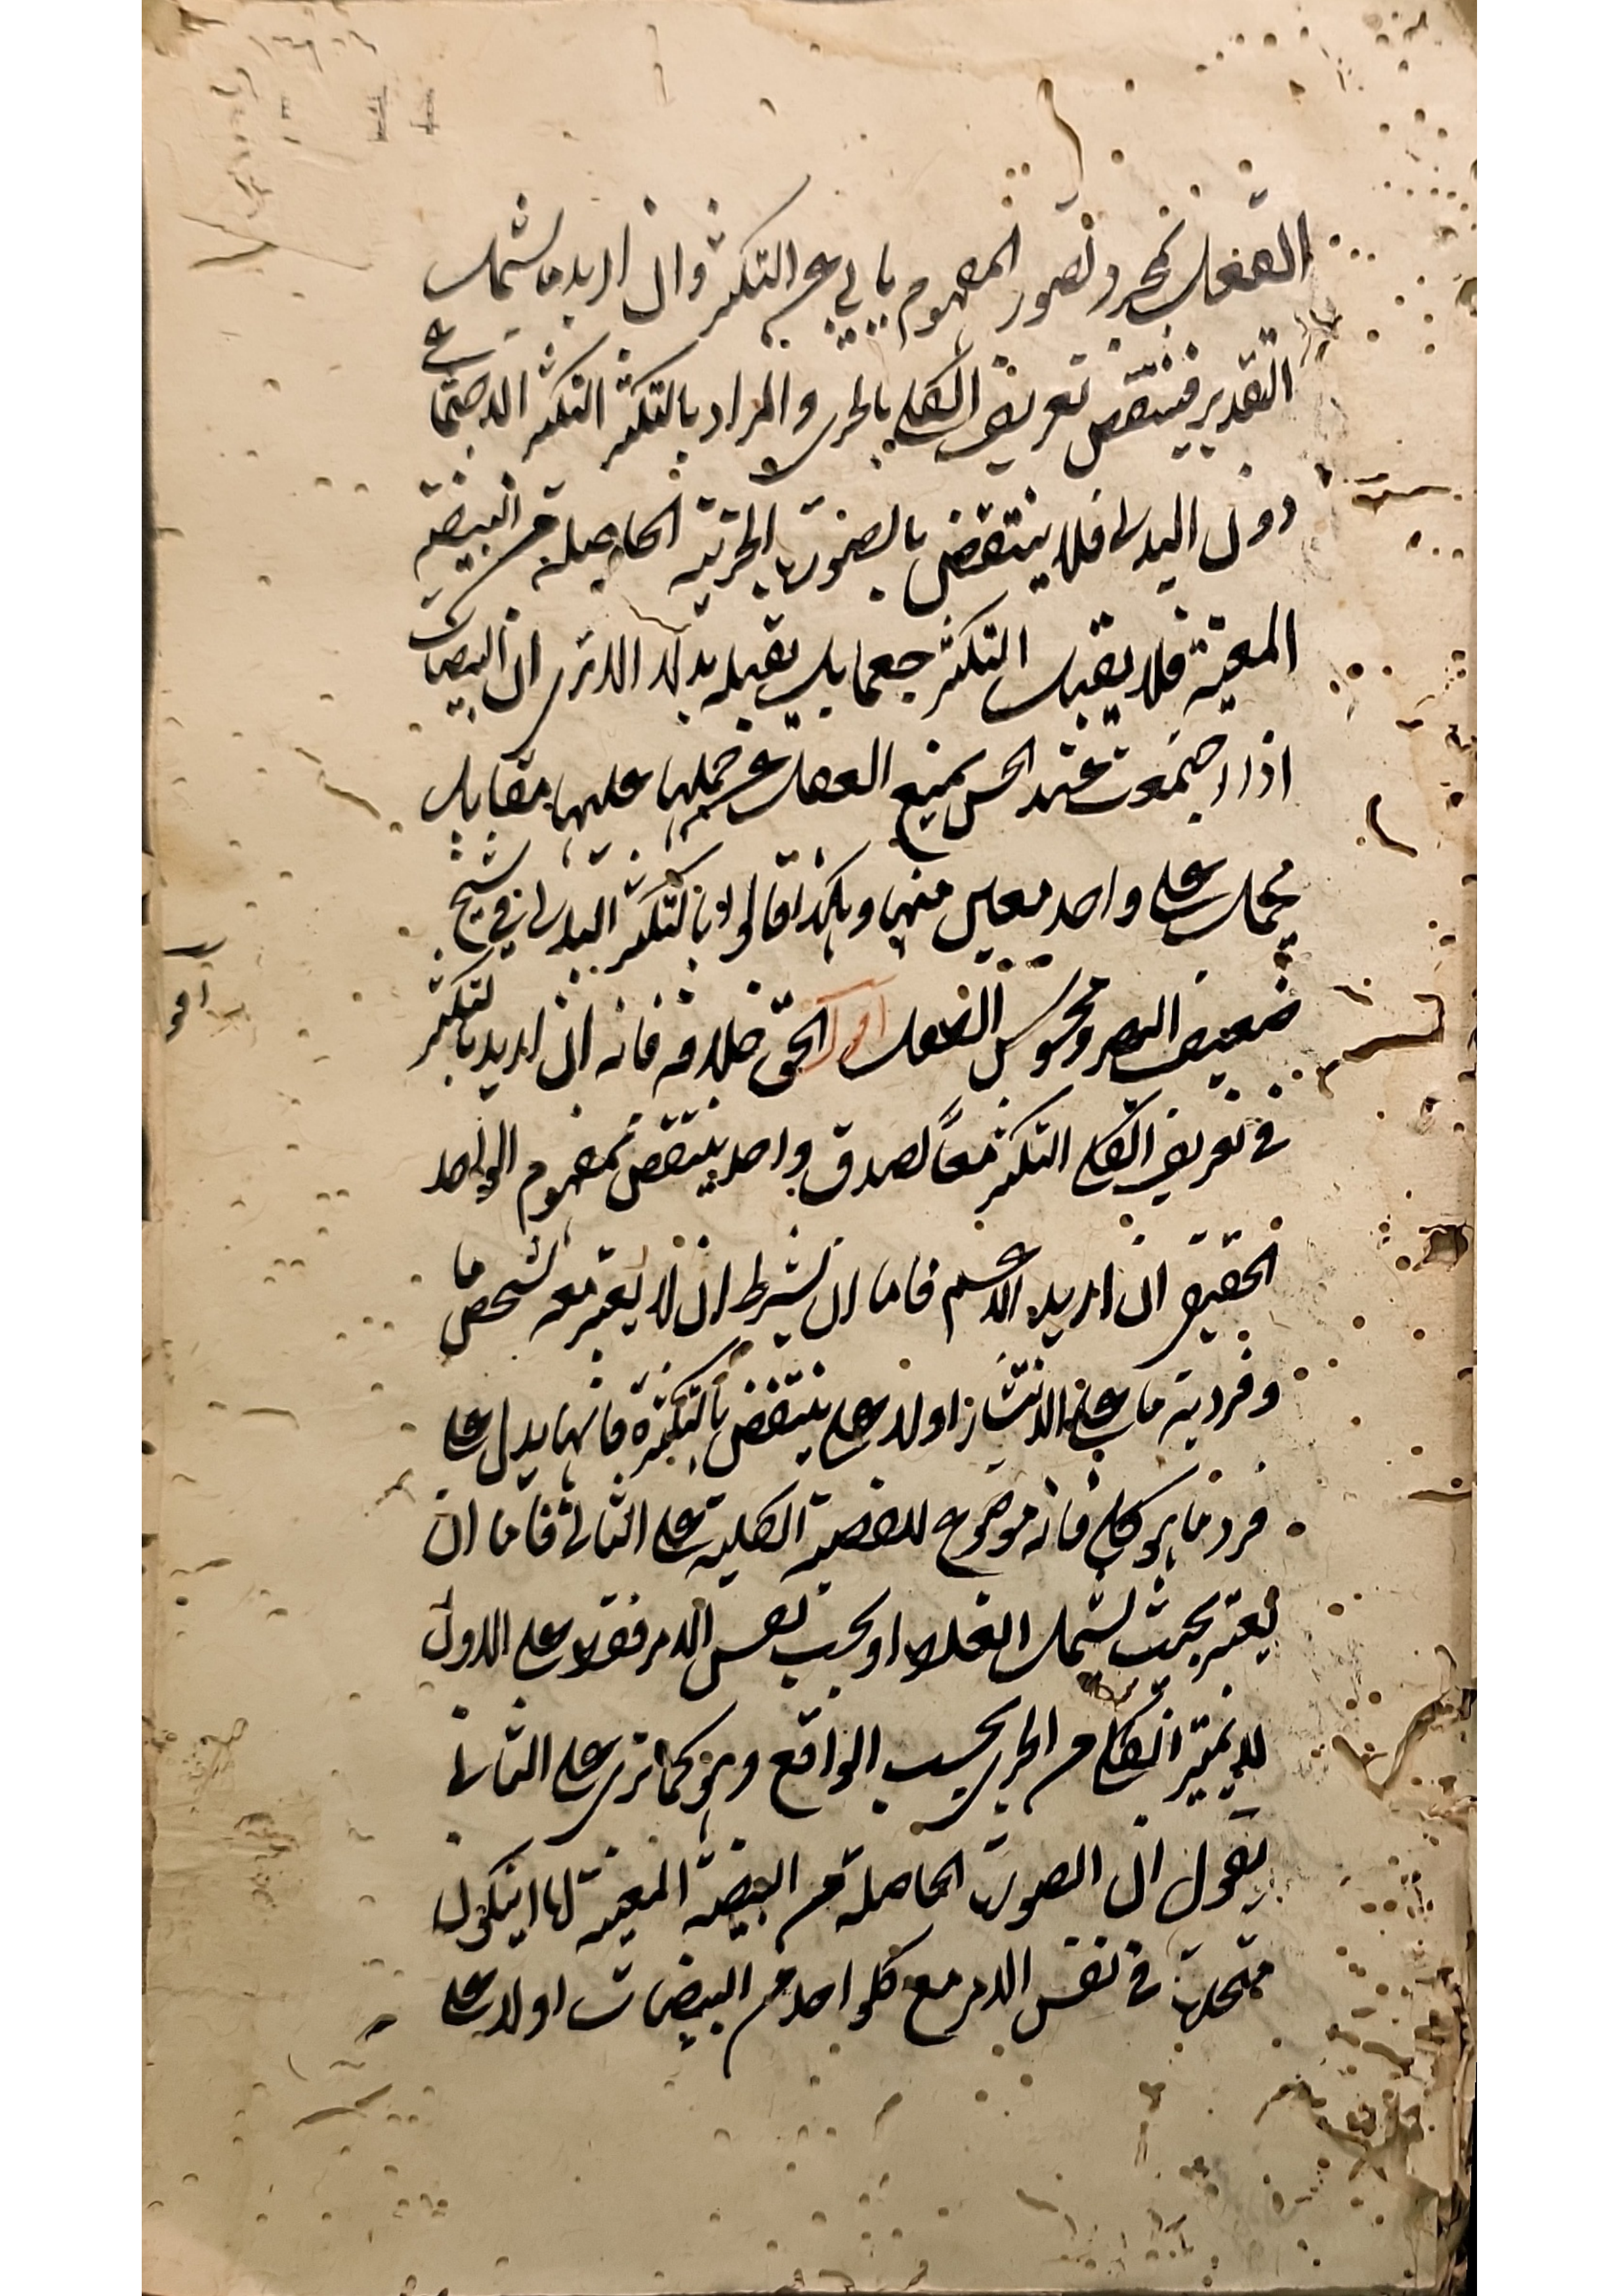 العقل بمجرد تصور المفهوم يابى عن التكثر وان اريد ما يشمل
التقدير فينتقض تعريف الكلي بالجزئي والمراد بالتكثر التكثر الاجتماعي
دون البدلي فلا ينتقض بالصورة الجزئية الحاصلة من البيضة
المعينة فلا يقبل التكثر جمعا بل يقبله بدلا الا ترى ان البيضات
اذا اجتمعت عند الحس يمنع العقل عن حملها عليها مقابل
يحمل على واحد معين منها وهكذا قالوا بالتكثر البدلي في شبح
ضعيف البصر ومحسوس الطفل اقول الحق خلافه فانه ان اريد بالتكثر
في تعريف الكلي التكثر معا لصدق واحد ينتقض بمفهوم الواحد
الحقيقي ان اريد الاعم فاما ان يشرط ان لا يعتبر معه شخص ما
وفردية ما على الانتشار اولا على ينتقض بالنكرة فانها يدل على
فرد ما هو كلي فانه موضوع للقضية الكلية على الثاني فاما ان
يعتبر بحيث يشمل الغلط او بحسب نفس الامر فقط على الاول
لا يتميز الكلي من الجزئي بحسب الواقع وهو كما ترى على الثاني
يقول ان الصورة الحاصلة من البيضة المعينة لها ان يكون
متحدة في نفس الامر مع كل واحد من البيضات اولا على